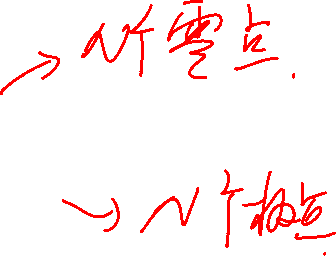 → N个零点.
→ N个极点.